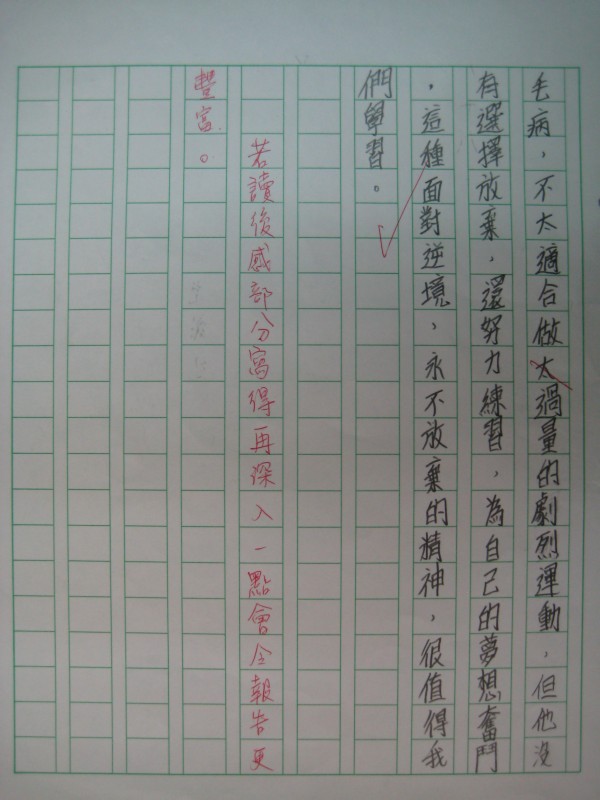 毛病，不太適合做太過量的劇烈運動，但他沒
有選擇放棄，還努力練習，為自己的夢想奮鬥
，這種面對逆境，永不放棄的精神，很值得我
們學習。
若讀後感部分寫得再深入一點會令報告更
豐富。